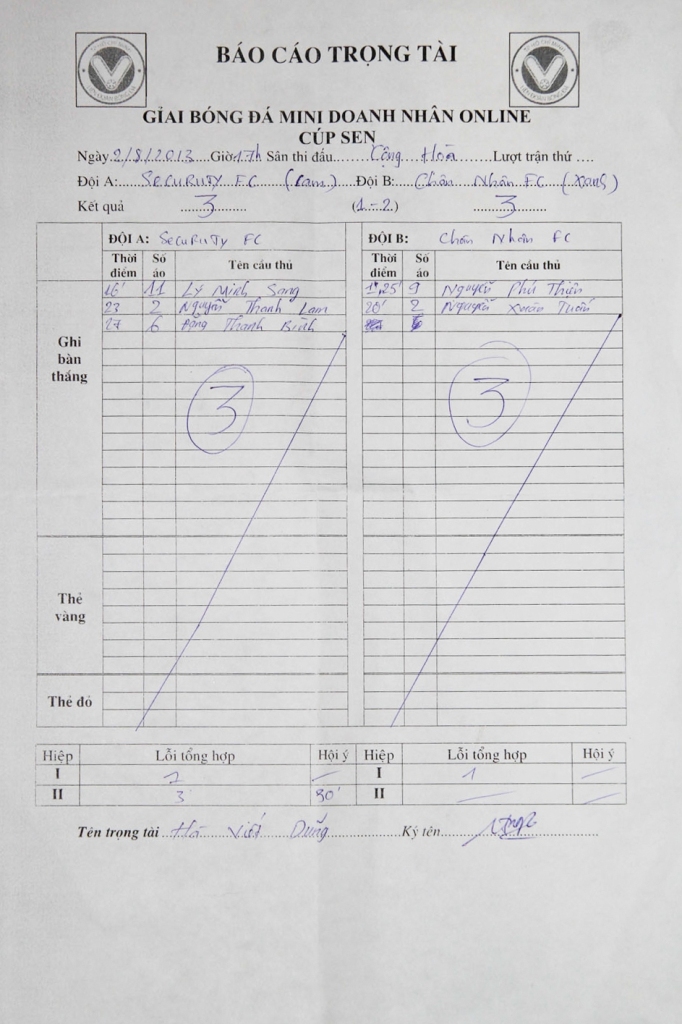 BÁO CÁO TRỌNG TÀI
GIẢI BÓNG ĐÁ MINI DOANH NHÂN ONLINE
CÚP SEN
Ngày 2/8/2013 Giờ 17h Sân thi đấu Cộng Hoà Lượt trận thứ ....
Đội A: SECURUTY FC (Cam) Đội B: Chân Nhân FC (Xanh)
Kết quả 3 (1-2) 3
ĐỘI A: SecuRuTy FC ĐỘI B: Chân Nhân FC
Thời điểm Số áo Tên cầu thủ Thời điểm Số áo Tên cầu thủ
Ghi bàn thắng
16' 11 Lý Minh Sang 1', 25' 9 Nguyễn Phú Thiện
23 2 Nguyễn Thanh Lam 20' 2 Nguyễn Xuân Tuấn
27 6 Đặng Thanh Bình
3 3
Thẻ vàng
Thẻ đỏ
Hiệp Lỗi tổng hợp Hội ý Hiệp Lỗi tổng hợp Hội ý
I 2 — I 1 —
II 3 30' II — —
Tên trọng tài Hà Viết Dũng Ký tên